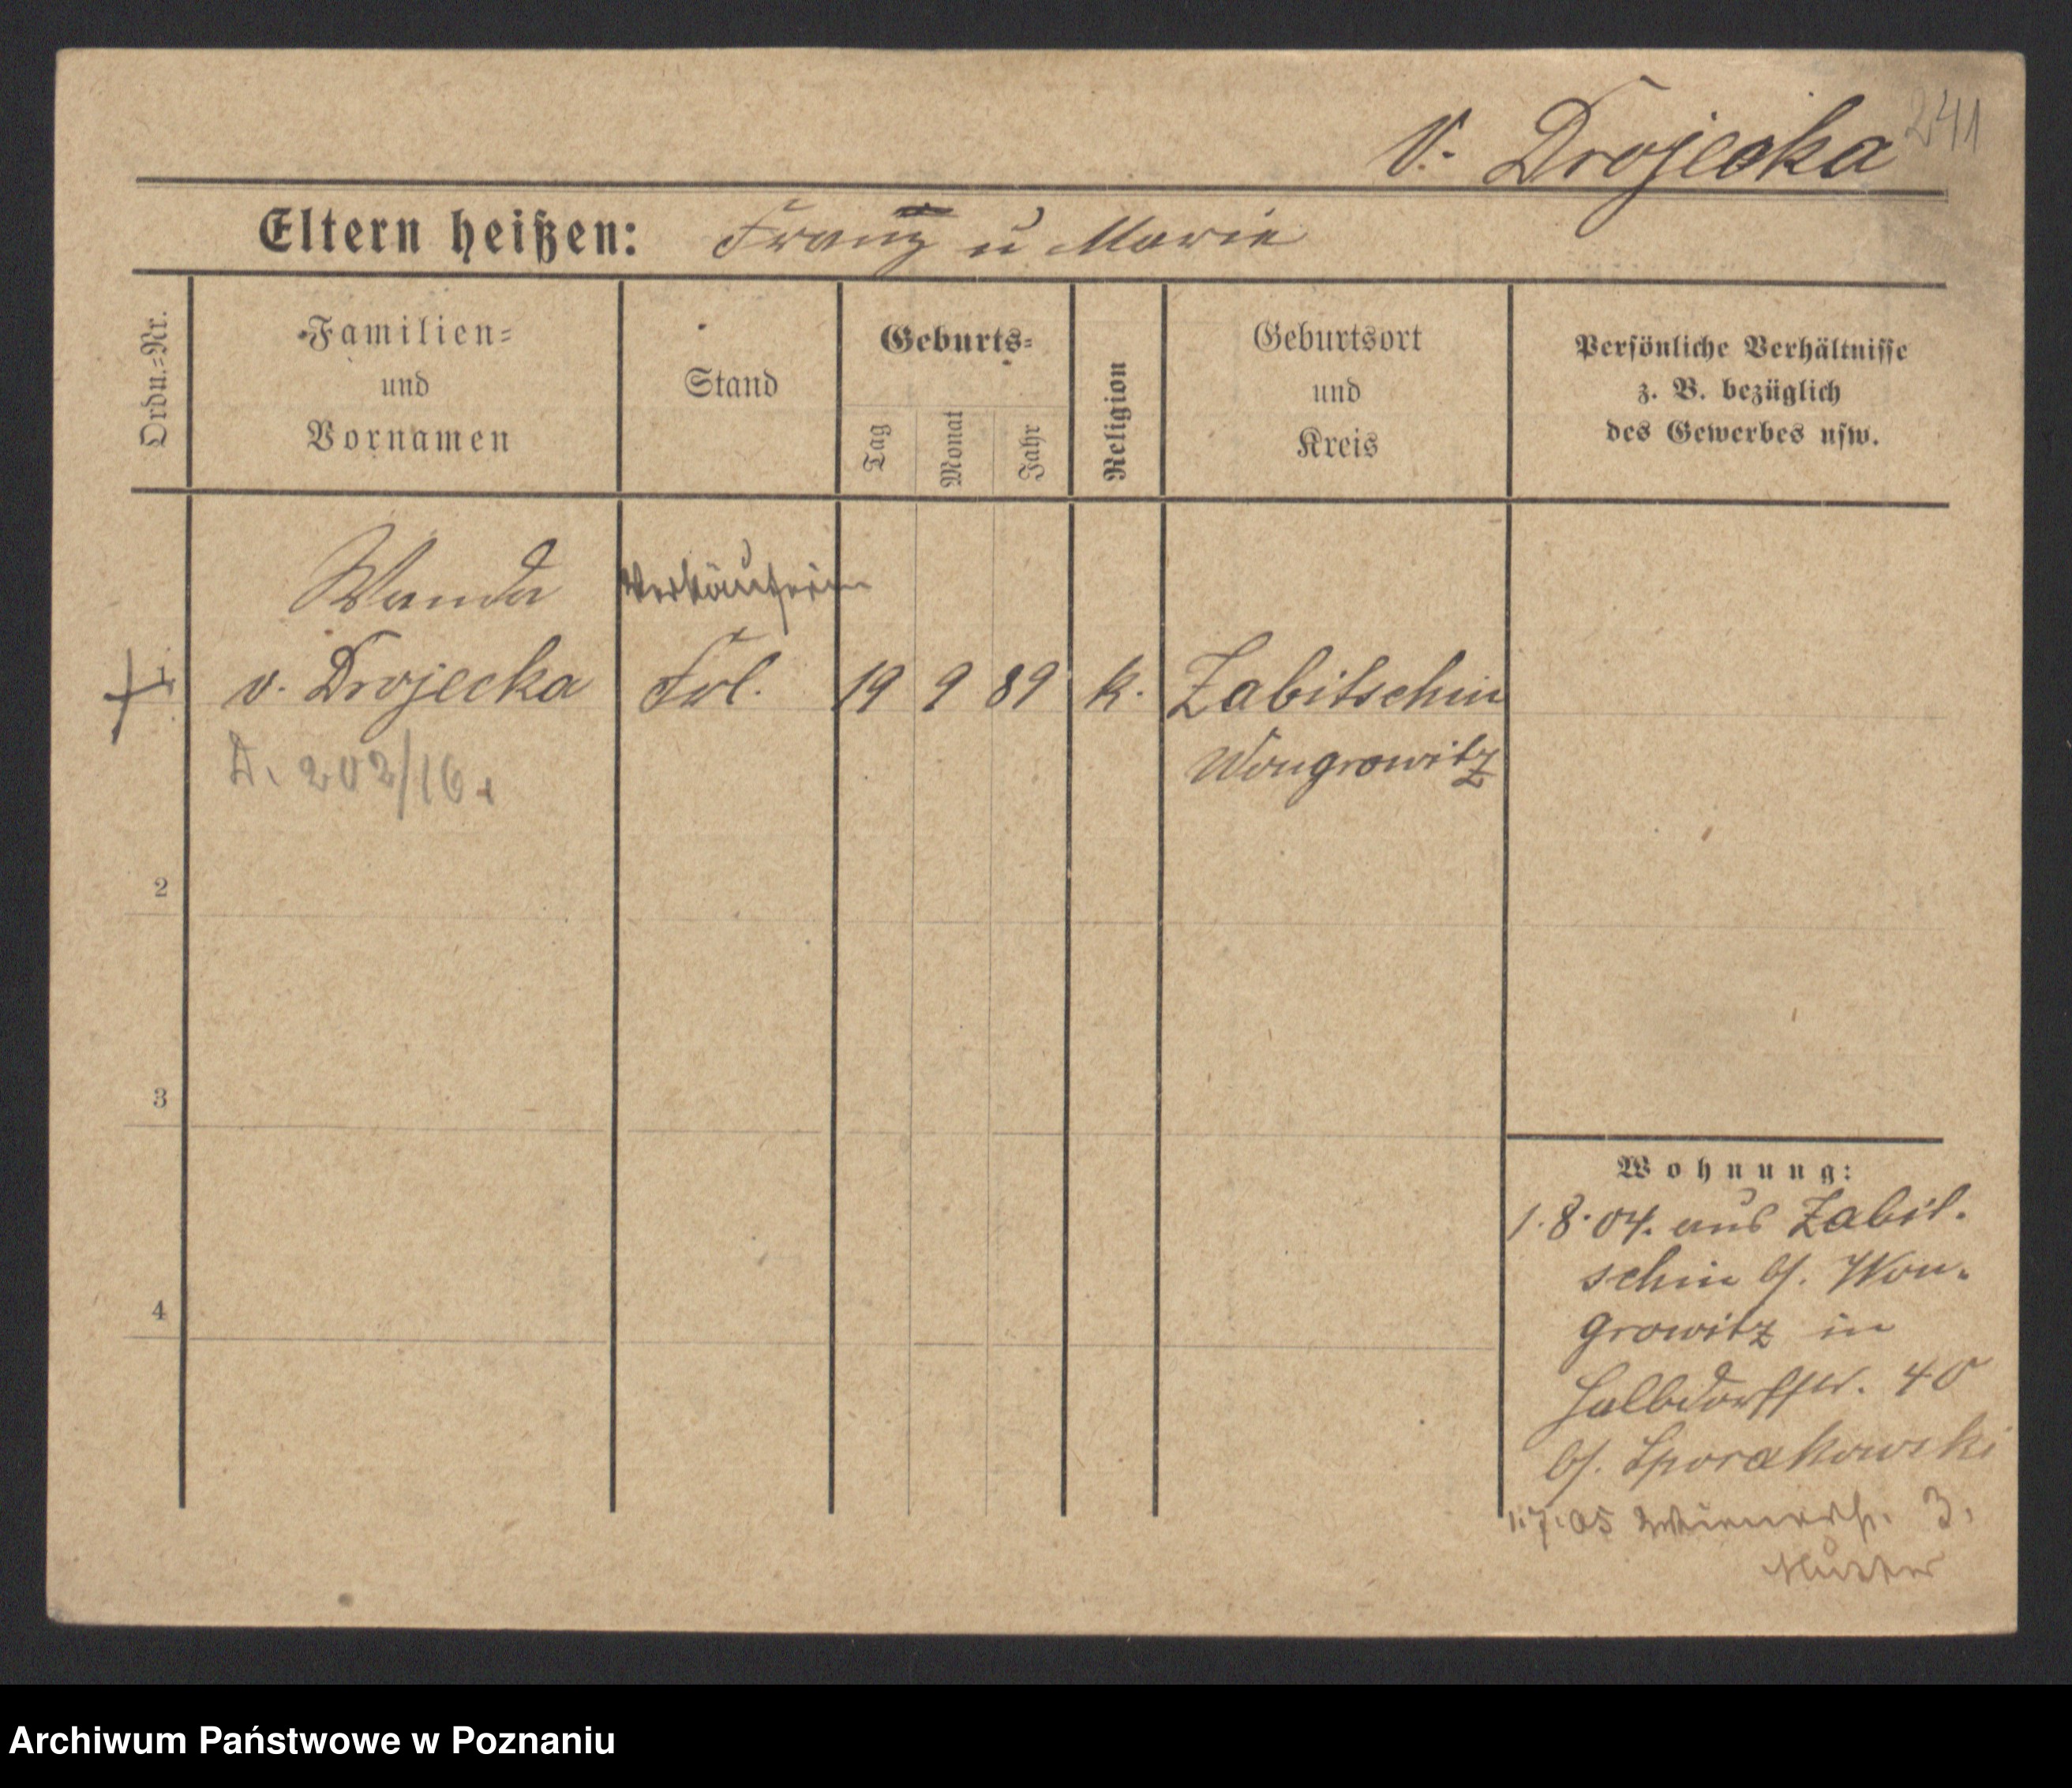 241
v. Drojecka
Eltern heißen: Franz u Marie
Ordn.=Nr.
Familien=
und
Vornamen
Stand
Geburts=
Tag
Monat
Jahr
Religion
Geburtsort
und
Kreis
Persönliche Verhältnisse
z. B. bezüglich
des Gewerbes usw.
Wanda Verkäuferin
1 v. Drojecka Frl. 19 9 89 k. Zabitschin
Wongrowitz
A. 202/16.
2
3
4
Wohnung:
1.8.04. aus Zabit-
schin b/. Won-
growitz in
Halbdorfstr. 40
b/. Sporakowski
1.7.05 3.
Mutter
Archiwum Państwowe w Poznaniu